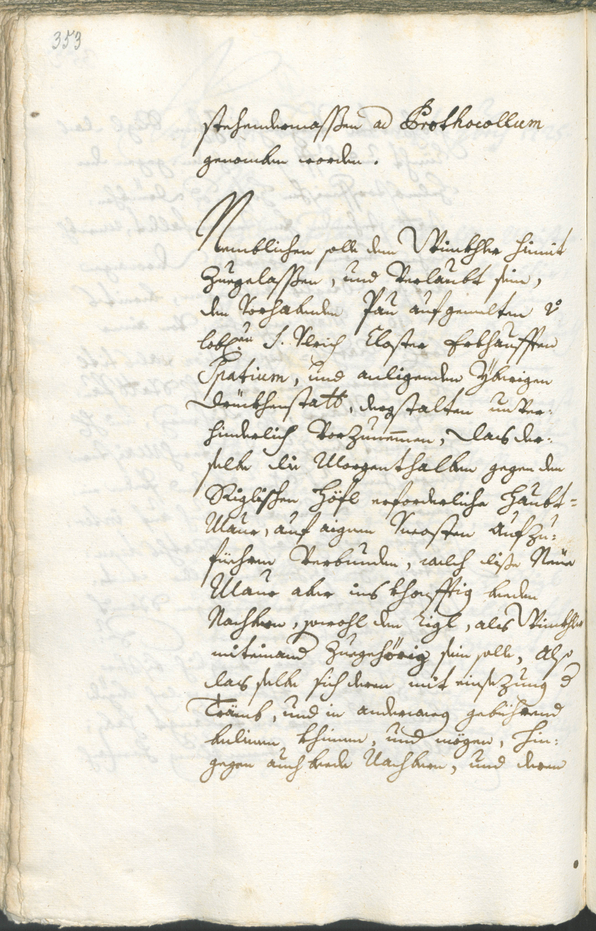 353
stehendermassen ad Prothocollum
genomben worden.
Nemblichen solle dem Winkhler hiemit
Zuegelassen, und Verlaubt sein,
den Vorhabenden Pau auf gemelten
lobl: S: Ulrich Closter Erkhaufften
Spatium, und anligenden yberigen
Druckhenstatt, dergstalten unVer-
hinderlich Vorzunemmen, das der-
selbe die Morgenthalben gegen dem
Riglischen Höfl erforderliche Haubt-
Maur, auf aignen Uncosten Aufzu-
führen Verbunden, welch dise Neüe
Maur aber ins khonfftig beeden
Nachbern, sowohl dem Rigl, als Winkhler
miteinand Zuegehörig sein solle, Also
das selbe sich deren mit einsezung d
Trämb, und in anderweeg gebührend
bedienen khinnen, und mögen, hin-
gegen auch beede Nachbern, und deren